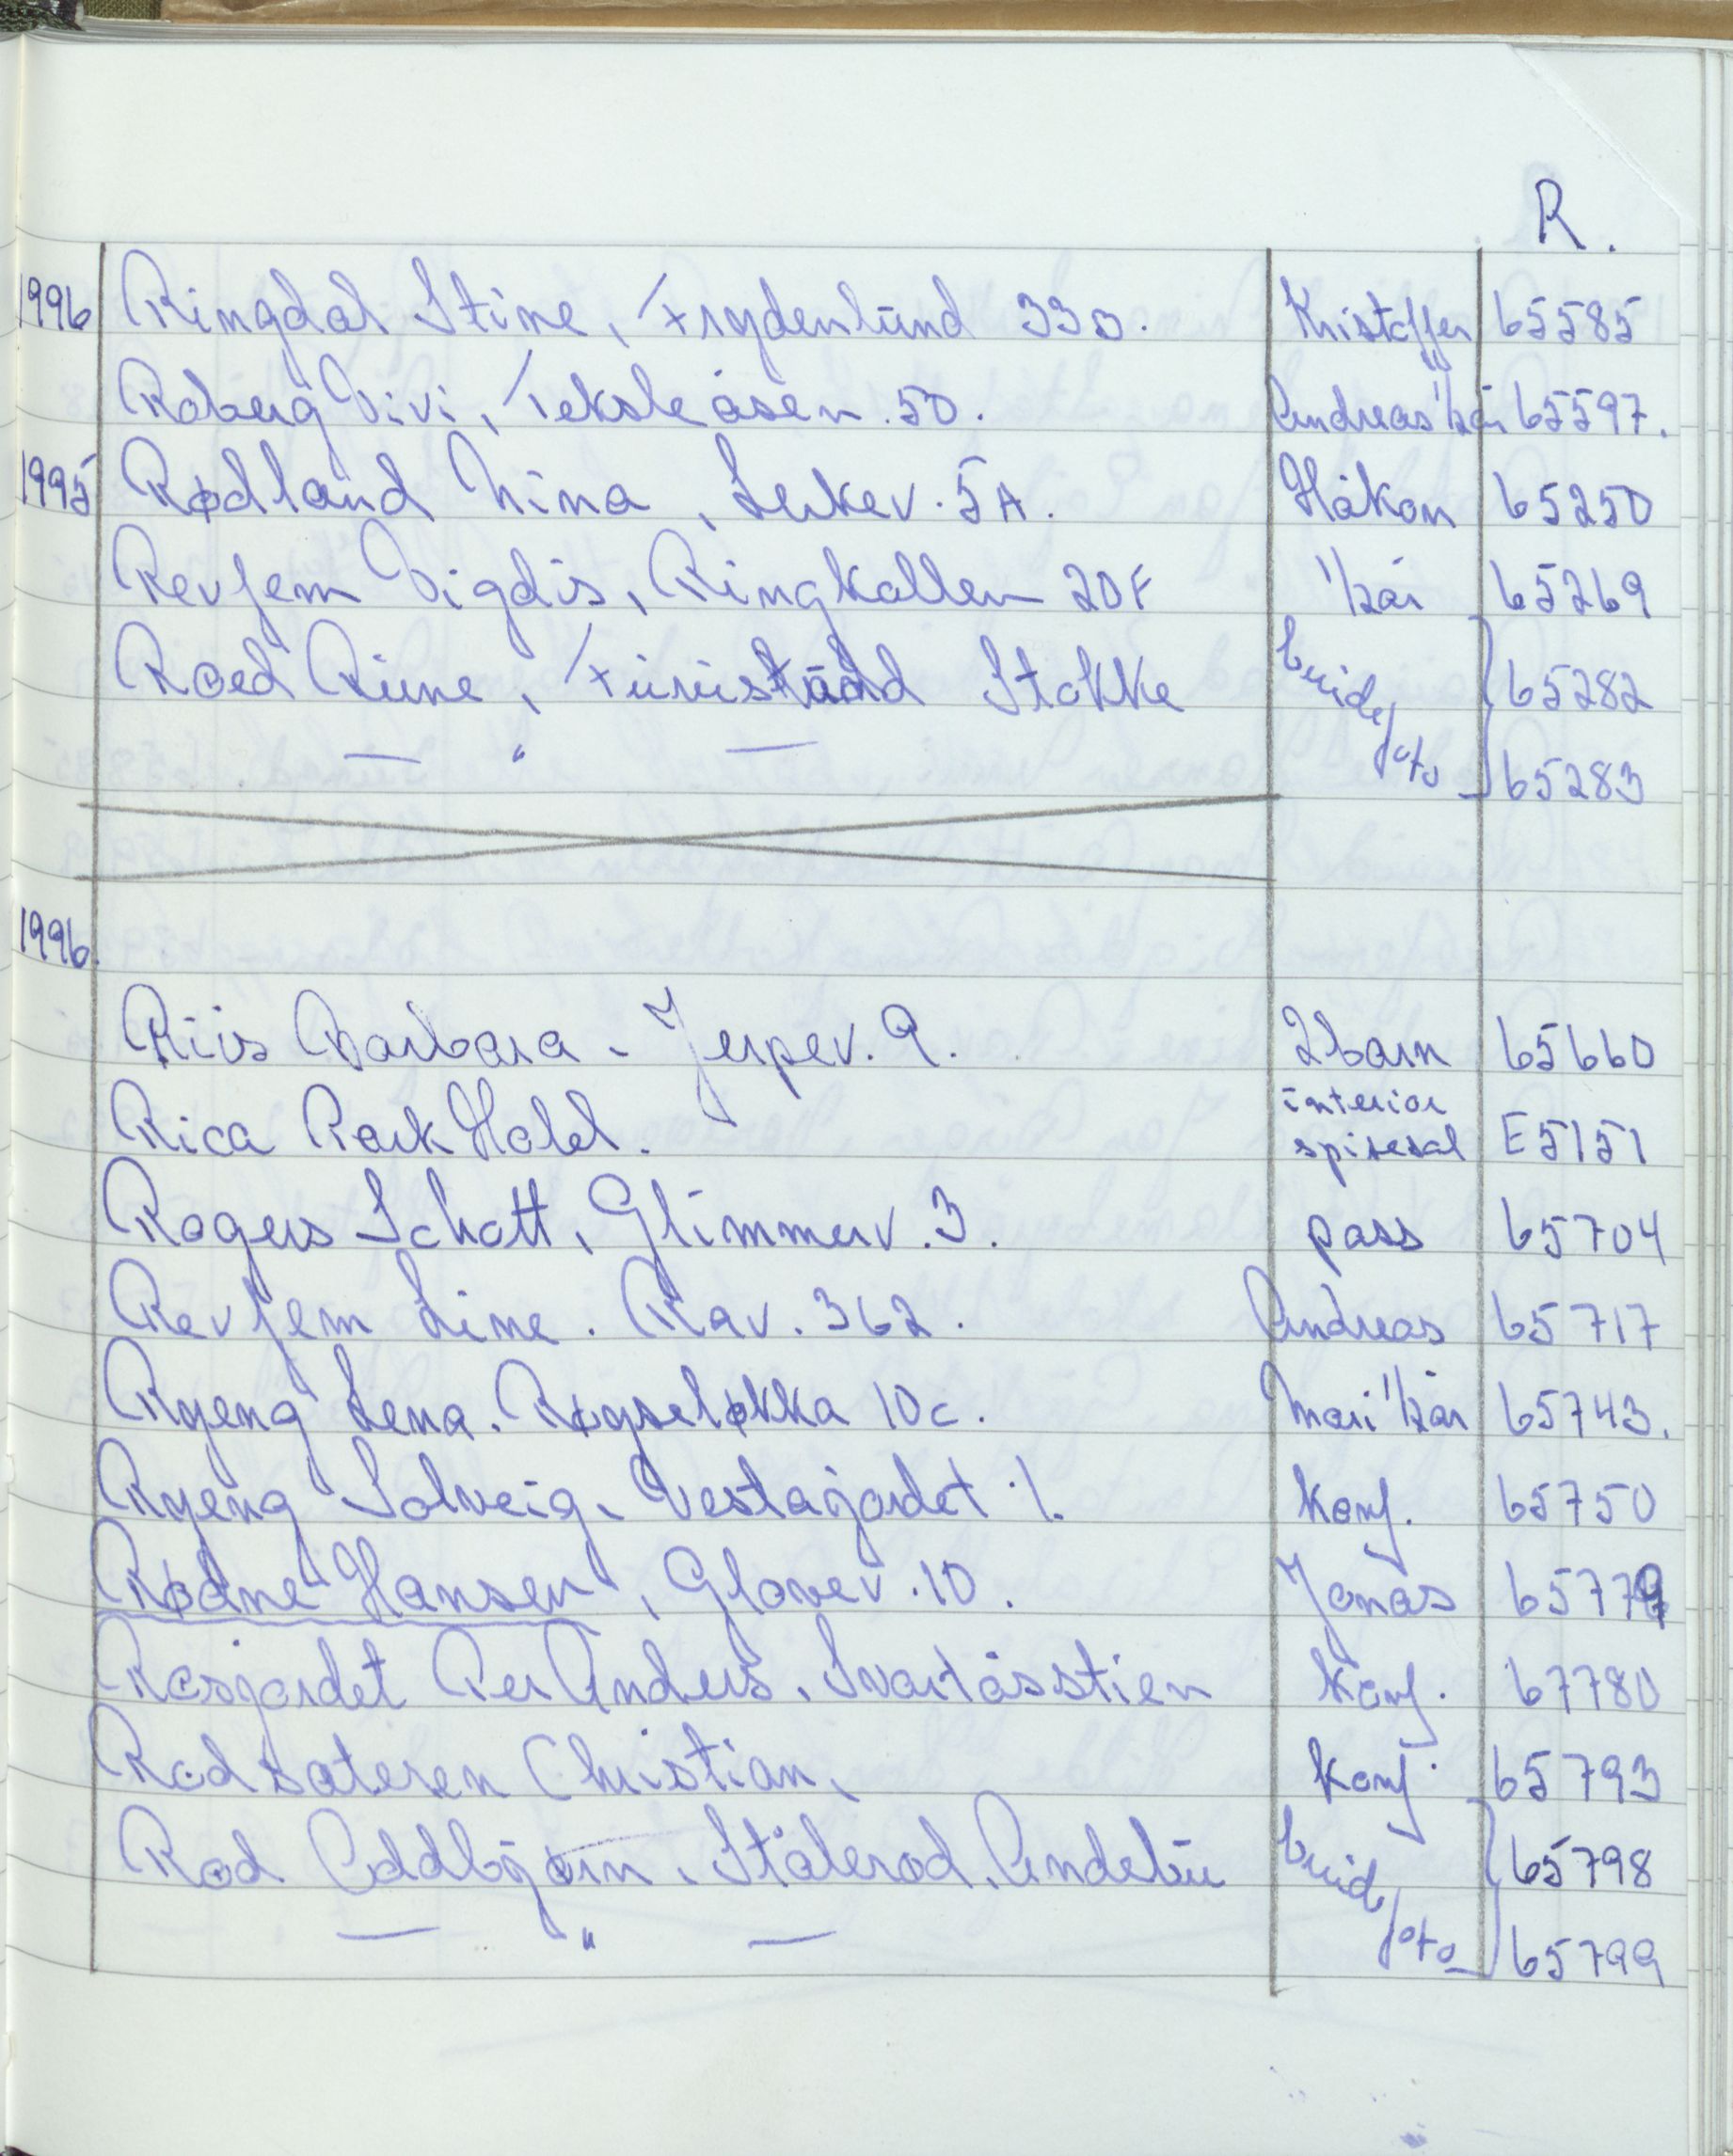 R.
1996 Ringdal Stine, Frydenlund 33D. Kristoffer 65585
Roberg Vivi, Teksleåsen 50. Andreas 1/2år 65597.
1995 Rødland Nina, Lerkev. 5A. Håkon 65250
Revjem Vigdis, Ringkollen 20F 1/2år 65269
Roed Rune, Furustrand Stokke brude 65282
— " — foto 65283
1996.
Riis Barbara - Jerpev. 9. 2barn 65660
Rica Park Hotel. interiør spisesal E5151
Rogers Schott, Glimmerv. 3. pass 65704
Revjem Line. Rav. 362. Andreas 65717
Ryeng Lena. Røyseløkka 10c. Mari 1/2år 65743.
Ryeng Solveig, Vestajordet 1. Konf. 65750
Rødne Hansen, Glavev. 10. Jonas 65779
Rasjordet Per Anders, Svartåsstien Konf. 67780
Rodsateren Christian, Konf. 65793
Rød Oddbjørn, Stålerød, Andebu brude 65798
— " — foto 65799